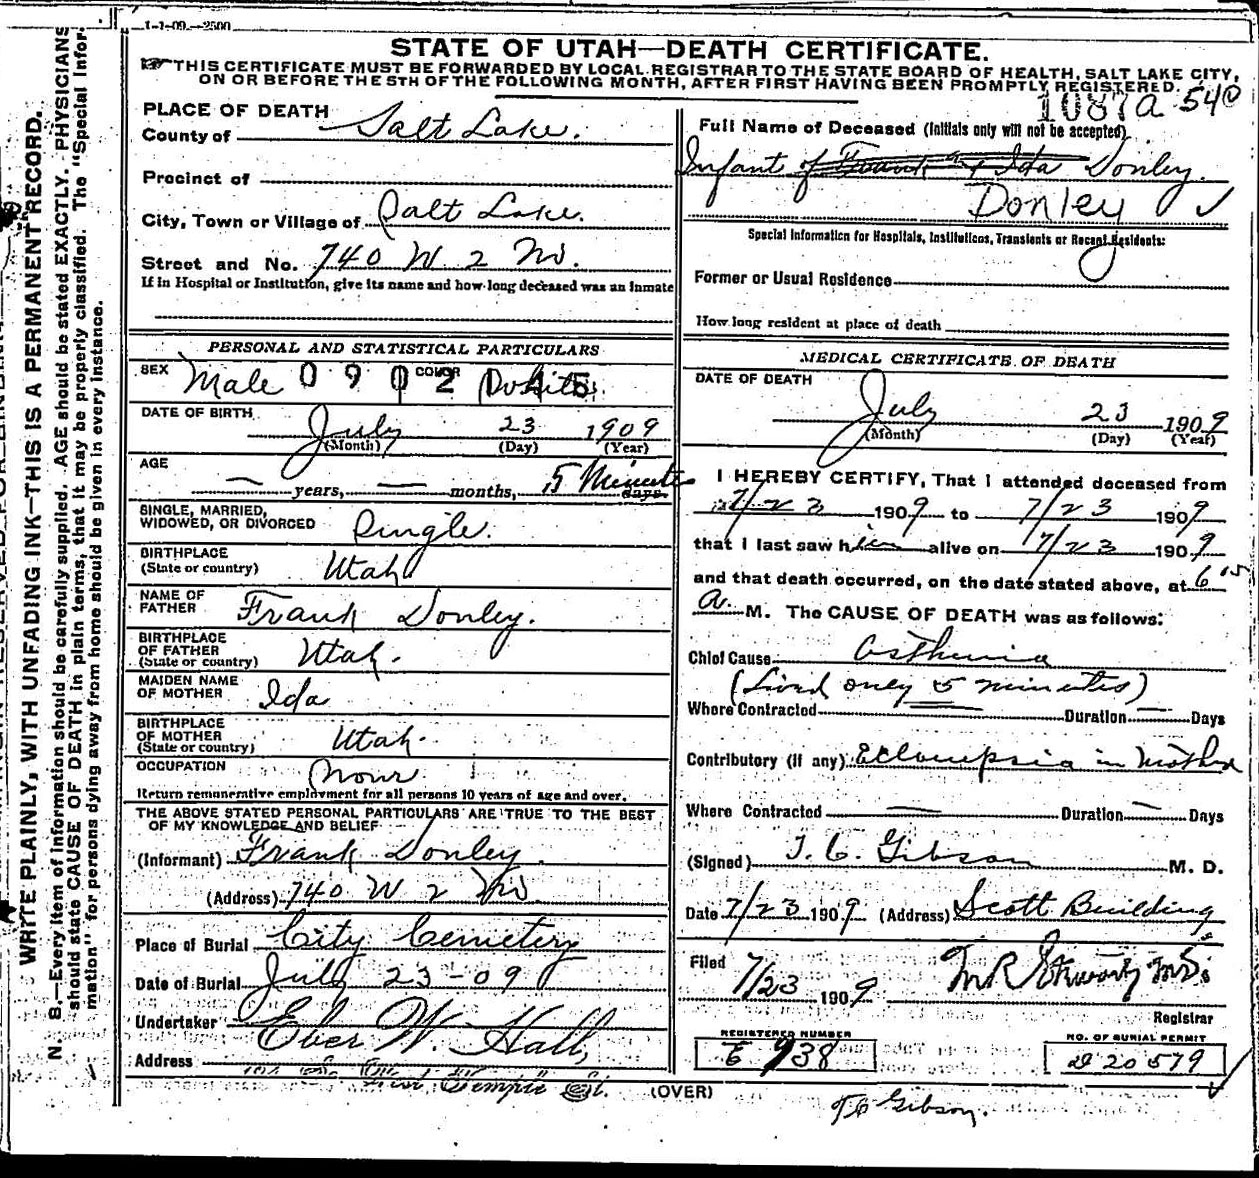 1-1-09.—2500
STATE OF UTAH—DEATH CERTIFICATE.
THIS CERTIFICATE MUST BE FORWARDED BY LOCAL REGISTRAR TO THE STATE BOARD OF HEALTH, SALT LAKE CITY,
ON OR BEFORE THE 5TH OF THE FOLLOWING MONTH, AFTER FIRST HAVING BEEN PROMPTLY REGISTERED.
1087a 540
WRITE PLAINLY, WITH UNFADING INK—THIS IS A PERMANENT RECORD.
N. B.—Every item of information should be carefully supplied. AGE should be stated EXACTLY. PHYSICIANS
should state CAUSE OF DEATH in plain terms, that it may be properly classified. The "Special Infor-
mation" for persons dying away from home should be given in every instance.
PLACE OF DEATH
County of Salt Lake.
Precinct of
City, Town or Village of Salt Lake.
Street and No. 740 W 2 No.
If in Hospital or Institution, give its name and how long deceased was an inmate
PERSONAL AND STATISTICAL PARTICULARS
SEX Male COLOR White
0902145
DATE OF BIRTH July 23 1909
(Month) (Day) (Year)
AGE
— years, — months, 5 Minutes days.
SINGLE, MARRIED,
WIDOWED, OR DIVORCED Single.
BIRTHPLACE
(State or country) Utah
NAME OF
FATHER Frank Donley.
BIRTHPLACE
OF FATHER
(State or country) Utah.
MAIDEN NAME
OF MOTHER Ida
BIRTHPLACE
OF MOTHER
(State or country) Utah.
OCCUPATION None
Return remunerative employment for all persons 10 years of age and over.
THE ABOVE STATED PERSONAL PARTICULARS ARE TRUE TO THE BEST
OF MY KNOWLEDGE AND BELIEF
(Informant) Frank Donley.
(Address) 740 W 2 No
Place of Burial City Cemetery
Date of Burial July 23-09
Undertaker Eber W. Hall,
Address West Temple St.
(OVER)
Full Name of Deceased (Initials only will not be accepted)
Infant of Frank & Ida Donley.
Donley ✓
Special Information for Hospitals, Institutions, Transients or Recent Residents:
Former or Usual Residence
How long resident at place of death
MEDICAL CERTIFICATE OF DEATH
DATE OF DEATH
July 23 1909
(Month) (Day) (Year)
I HEREBY CERTIFY, That I attended deceased from
7/23 1909 to 7/23 1909
that I last saw him alive on 7/23 1909
and that death occurred, on the date stated above, at 6 15
a. M. The CAUSE OF DEATH was as follows:
Chief Cause Asthenia
(Lived only 5 minutes)
Where Contracted — Duration — Days
Contributory (if any) Eclampsia in Mother
Where Contracted — Duration — Days
(Signed) T. C. Gibson M. D.
Date 7/23 1909 (Address) Scott Building
Filed
7/23 1909 M R Stewart MD.
Registrar
REGISTERED NUMBER
E 938
NO. OF BURIAL PERMIT
D 20579
TC Gibson.